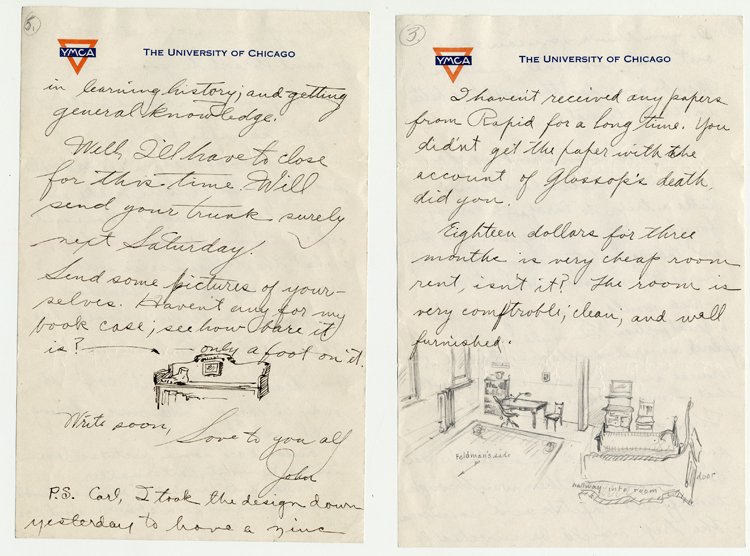 5.
YMCA
THE UNIVERSITY OF CHICAGO
in learning history; and getting
general knowledge.
Well, I'll have to close
for this time. Will
send your trunk surely
next Saturday.
Send some pictures of your-
selves. Haven't any for my
book case; see how bare it
is? only a foot on it.
Write soon,
Love to you all
John
P.S. Carl, I took the design down
yesterday to have a zinc
3.
YMCA
THE UNIVERSITY OF CHICAGO
I haven't received any papers
from Rapid for a long time. You
did'nt get the paper with the
account of Glossop's death,
did you.
Eighteen dollars for three
months is very cheap room
rent, isn't it? The room is
very comftroble; clean; and well
furnished.
Feldman's side
door
hallway into room